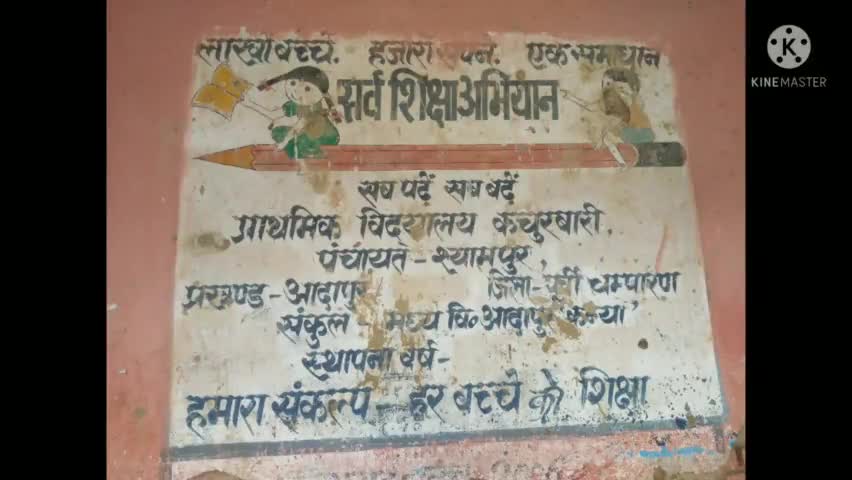 लाखों बच्चे. हजारों सपने. एक समाधान
सर्व शिक्षा अभियान
सब पढ़ें सब बढ़ें
प्राथमिक विद्यालय कचुरबारी,
पंचायत - श्यामपुर,
प्रखण्ड - आदापुर जिला - पूर्वी चम्पारण
संकुल - मध्य वि० आदापुर कन्या
स्थापना वर्ष -
हमारा संकल्प - हर बच्चे को शिक्षा
KINEMASTER